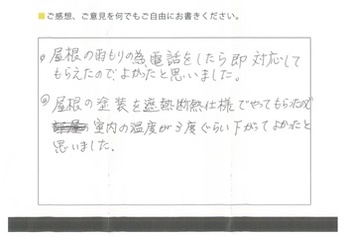 ■ご感想、ご意見を何でもご自由にお書きください。
◎屋根の雨もりの為電話をしたら即対応して
もらえたのでよかったと思いました。
◎屋根の塗装を遮熱断熱仕様でやってもらたので
室内の温度が3度ぐらい下がてよかったと
思いました.